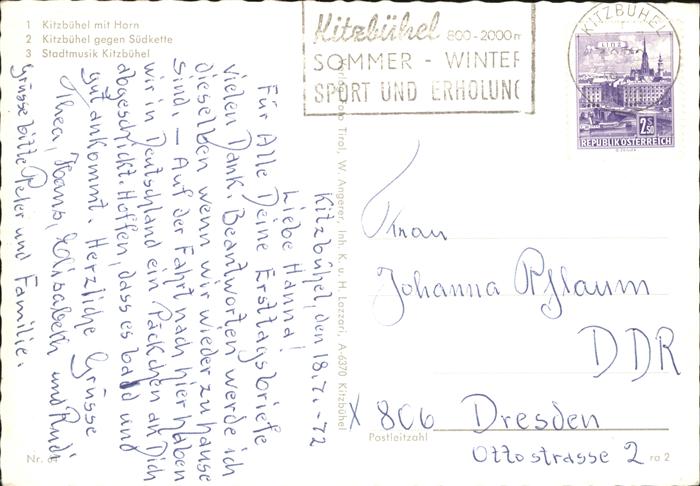 1 Kitzbühel mit Horn
2 Kitzbühel gegen Südkette
3 Stadtmusik Kitzbühel
Kitzbühel, den 18.7.-72
Liebe Hanna!
Für Alle Deine Ersttagsbriefe
vielen Dank. Beantworten werde ich
dieselben wenn wir wieder zuhause
sind. – Auf der Fahrt nach hier haben
wir in Deutschland ein Päckchen an Dich
abgeschickt. Hoffen, dass es bald und
gut ankommt. Herzliche Grüsse
Thea, Hans, Elisabeth und Rudi
Grüsse bitte Peter und Familie.
Nr.
Tirol, W. Angerer, Inh. K. u. H. Lazzari, A-6370 Kitzbühel
Kitzbühel 800-2000m
SOMMER - WINTER
SPORT UND ERHOLUNG
KITZBÜHEL
LINZ
2.50
REPUBLIK ÖSTERREICH
Frau
Johanna Pflaum
DDR
X 806 Dresden
Postleitzahl
Ottostrasse 2
ra 2